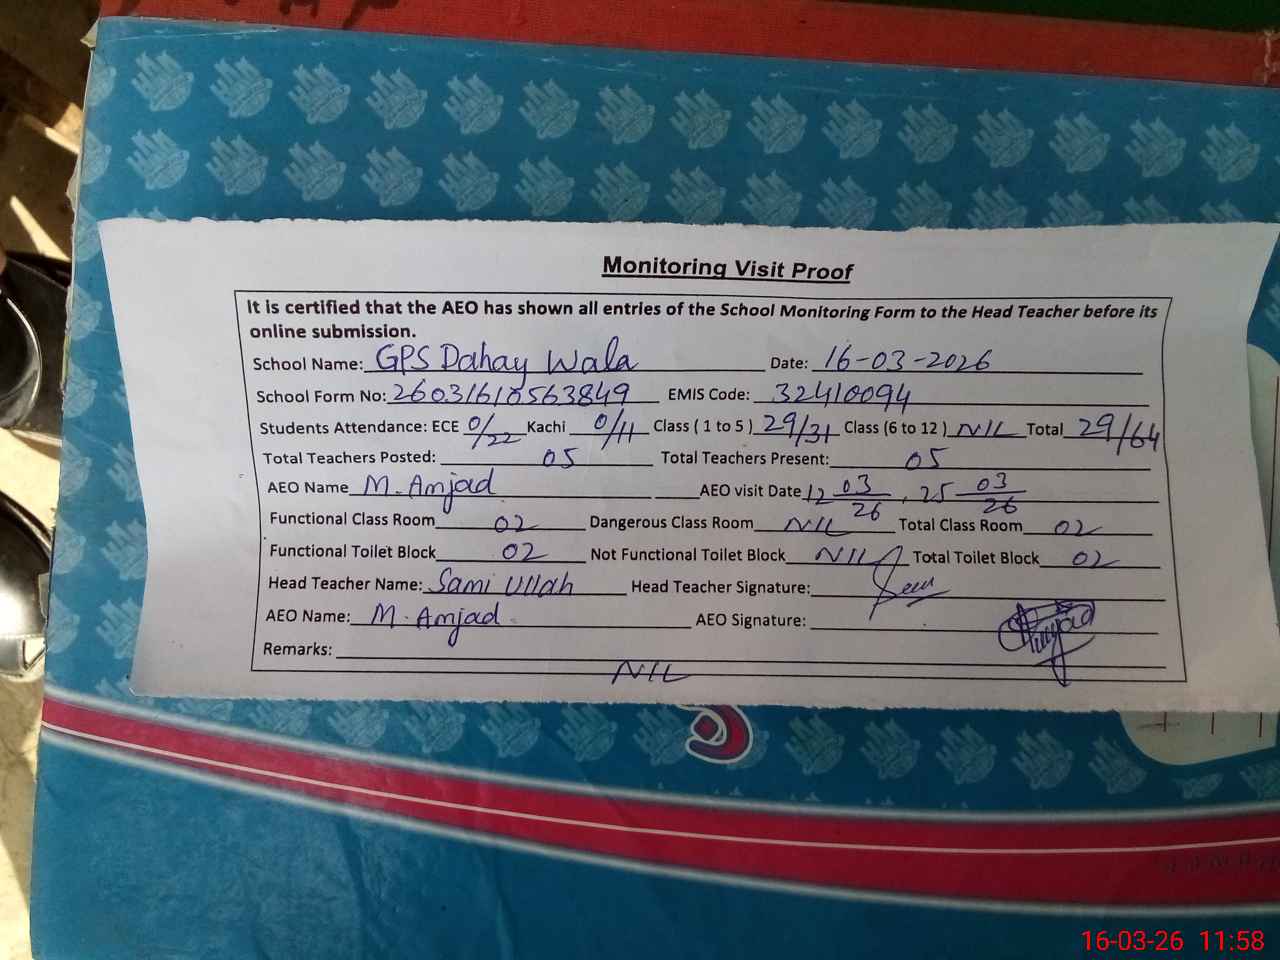 Monitoring Visit Proof
It is certified that the AEO has shown all entries of the School Monitoring Form to the Head Teacher before its
online submission.
School Name: GPS Dahay Wala Date: 16-03-2026
School Form No: 26031610563849 EMIS Code: 32410094
Students Attendance: ECE 0/22 Kachi 0/11 Class ( 1 to 5 ) 29/31 Class (6 to 12 ) NIL Total 29/64
Total Teachers Posted: 05 Total Teachers Present: 05
AEO Name M. Amjad AEO visit Date 12 03/26, 25 03/26
Functional Class Room 02 Dangerous Class Room NIL Total Class Room 02
Functional Toilet Block 02 Not Functional Toilet Block NIL Total Toilet Block 02
Head Teacher Name: Sami Ullah Head Teacher Signature:
AEO Name: M. Amjad AEO Signature: Amjad
Remarks:
NIL
16-03-26 11:58